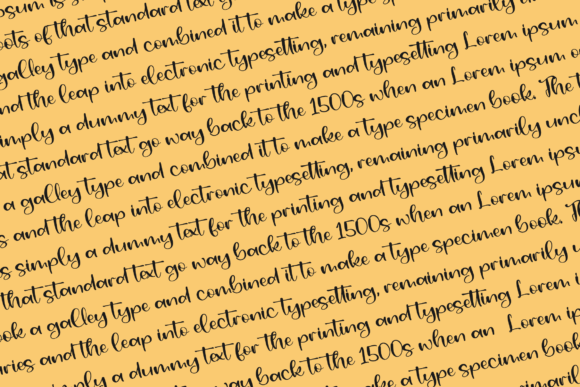 psum is
oots of that standard text
galley type and combined it to make a type
and the leap into electronic typesetting, remaining primarily
simply a dummy text for the printing and typesetting Lorem ipsum
at standard text go way back to the 1500s when an Lorem ipsum
a galley type and combined it to make a type specimen book. The
s and the leap into electronic typesetting, remaining primarily unch
s simply a dummy text for the printing and typesetting Lorem ipsum
that standard text go way back to the 1500s when an Lorem ipsu
ook a galley type and combined it to make a type specimen book. Th
aries and the leap into electronic typesetting, remaining primarily
simply a dummy text for the printing and typesetting Lorem
text go way back to the 1500s when an Lorem
make a type specimen book